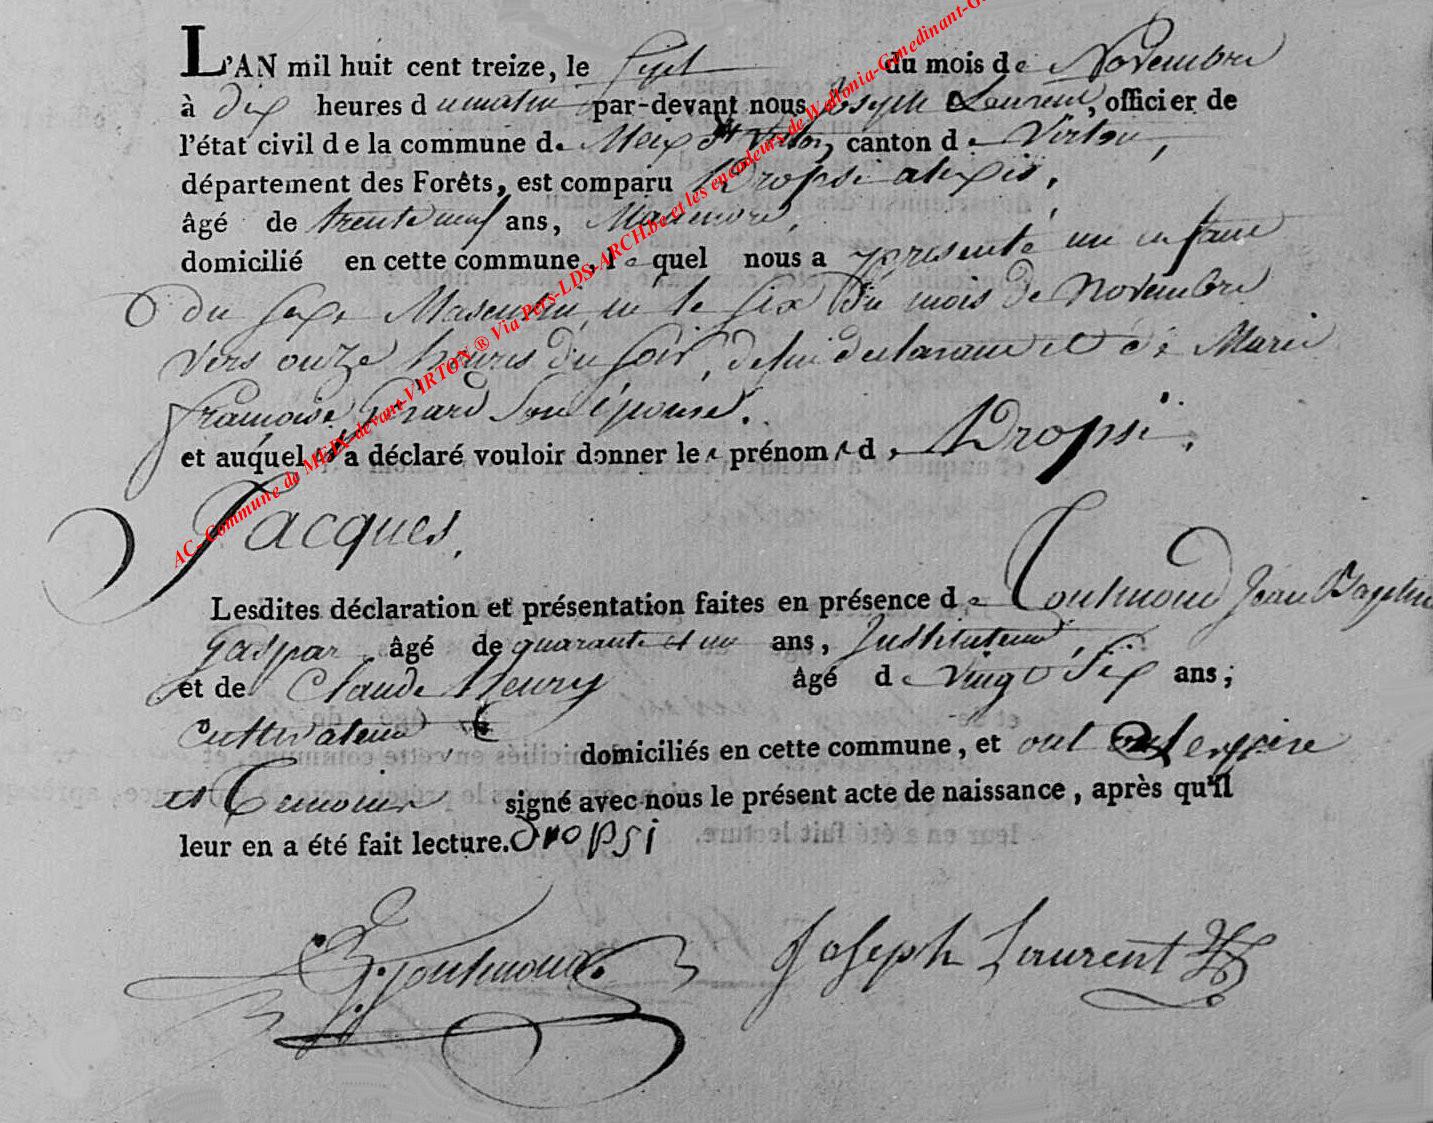 L'AN mil huit cent treize, le Sept du mois de Novembre
à dix heures du matin par-devant nous Joseph Laurent, officier de
l'état civil de la commune de Meix dt Virton, canton de Virton,
département des Forêts, est comparu Dropsi alexis,
âgé de trente neuf ans, Manœuvre,
domicilié en cette commune, lequel nous a présenté un enfant
du sexe Masculin, né le six du mois de Novembre
vers onze heures du soir, de lui déclarant et de Marie
françoise Gérard Son épouse.
et auquel il a déclaré vouloir donner les prénoms de Dropsi
Jacques.
Lesdites déclaration et présentation faites en présence de Toulmond Jean Baptiste
gaspar âgé de quarante et un ans, Instituteur,
et de Claude Henry âgé de vingt Six ans;
Cultivateur
domiciliés en cette commune, et ont le père
et témoins signé avec nous le présent acte de naissance, après qu'il
leur en a été fait lecture. dropsi
J. Toulmond. Joseph Laurent
AC-Commune de MEIX-devant-VIRTON ® Via Pers-LDS-ARCH.be et les encodeurs de Wallonia-Genedinant-G